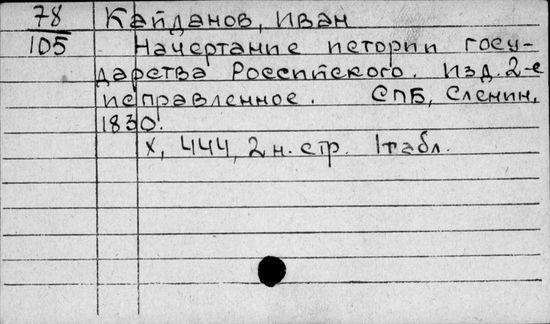 78 Кайданов, Иван
105 Начертание истории госу-
дарства Российского. Изд. 2-е
исправленное. СПБ, Сленин,
1830.
X, 444, 2 н. стр. 1 табл.